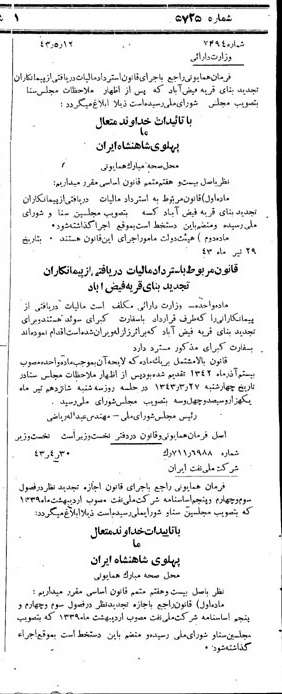 شماره ۵۷۲۵
۱
شماره ۷۴۹۴ ۱۲ر۵ر۴۳
وزارت دارائی
فرمان همایونی راجع باجرای قانون استرداد مالیات دریافتی از پیمانکاران
تجدید بنای قریه فیض آباد که پس از اظهار ملاحظات مجلس سنا
بتصویب مجلس شورای ملی رسیده است ذیلا ابلاغ میگردد :
با تائیدات خداوند متعال
ما
پهلوی شاهنشاه ایران
محل صحه مبارک همایونی
نظر باصل بیست و هفتم متمم قانون اساسی مقرر میداریم :
ماده اول) قانون مربوط به استرداد مالیات دریافتی از پیمانکاران
تجدید بنای قریه فیض آباد کسه بتصویب مجلسین سنا و شورای
ملی رسیده و منضم باین دستخط است بموقع اجرا گذاشته شود
ماده دوم ) هیئت دولت مامور اجرای این قانون هستند ۰ بتاریخ
۲۹ تیر ماه ۴۳
قانون مربوط باسترداد مالیات دریافتی از پیمانکاران
تجدید بنای قریه فیض اباد
ماده واحده – وزارت دارائی مکلف است مالیات دریافتی از
پیمانکارانی را که طرف قرارداد باسفارت کبرای سوئد هستند و برای
تجدید بنای قریه فیض آباد که بر اثر زلزله ویران شده است اقدام نموده اند
بسفارت کبرای مذکور مسترد دارد
قانون بالا مشتمل بر یک ماده که لایحه آن بموجب ماده واحده مصوب
بیستم آذر ماه ۱۳۴۲ تقدیم شده بود پس از اظهار ملاحظات مجلس سنا در
تاریخ چهارشنبه ۲۷ر۳ر۱۳۴۳ در جلسه روز سه شنبه شانزدهم تیر ماه
یکهزار و سیصد و چهل و سه بتصویب مجلس شورای ملی رسید .
رئیس مجلس شورای ملی – مهندس عبداله ریاضی
اصل فرمان همایونی و قانون در دفتر نخست وزیر است نخست وزیر
شماره ۶۹۸۸ر۷۱۱ک ۳۰ر۴ر۴۳
شرکت ملی نفت ایران
فرمان همایونی راجع باجرای قانون اجازه تجدید نظر در فصول
سوم و چهارم و پنجم اساسنامه شرکت ملی نفت مصوب اردیبهشت ماه ۱۳۳۹
که بتصویب مجلسین سنا و شورای ملی رسیده است ذیلا ابلاغ میگردد :
با تاییدات خداوند متعال
ما
پهلوی شاهنشاه ایران
محل صحه مبارک همایونی
نظر باصل بیست و هفتم متمم قانون اساسی مقرر میداریم :
ماده اول) قانون راجع باجازه تجدید نظر در فصول سوم و چهارم و
پنجم اساسنامه شرکت ملی نفت مصوب اردیبهشت ماه ۱۳۳۹ که بتصویب
مجلسین سنا و شورای ملی رسیده و منضم باین دستخط است بموقع اجراء
گذاشته شود ۰